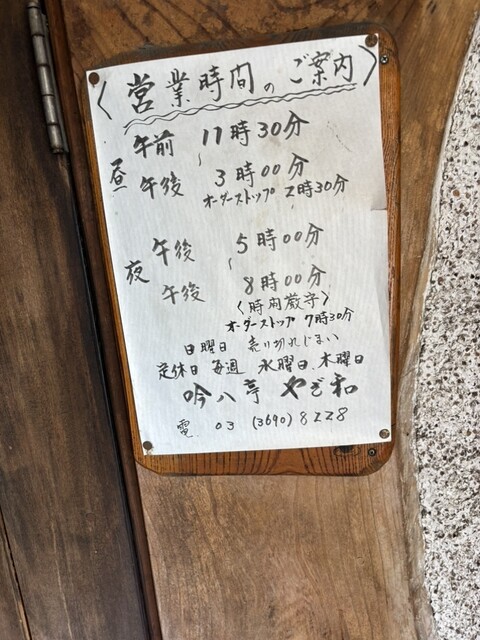 〈営業時間のご案内〉
昼 午前 11時30分
〜
午後 3時00分
オーダーストップ 2時30分
夜 午後 5時00分
〜
午後 8時00分
〈時間厳守〉
オーダーストップ 7時30分
日曜日 売り切れじまい
定休日 毎週 水曜日、木曜日
吟八亭 やざ和
電. 03 (3690) 8228